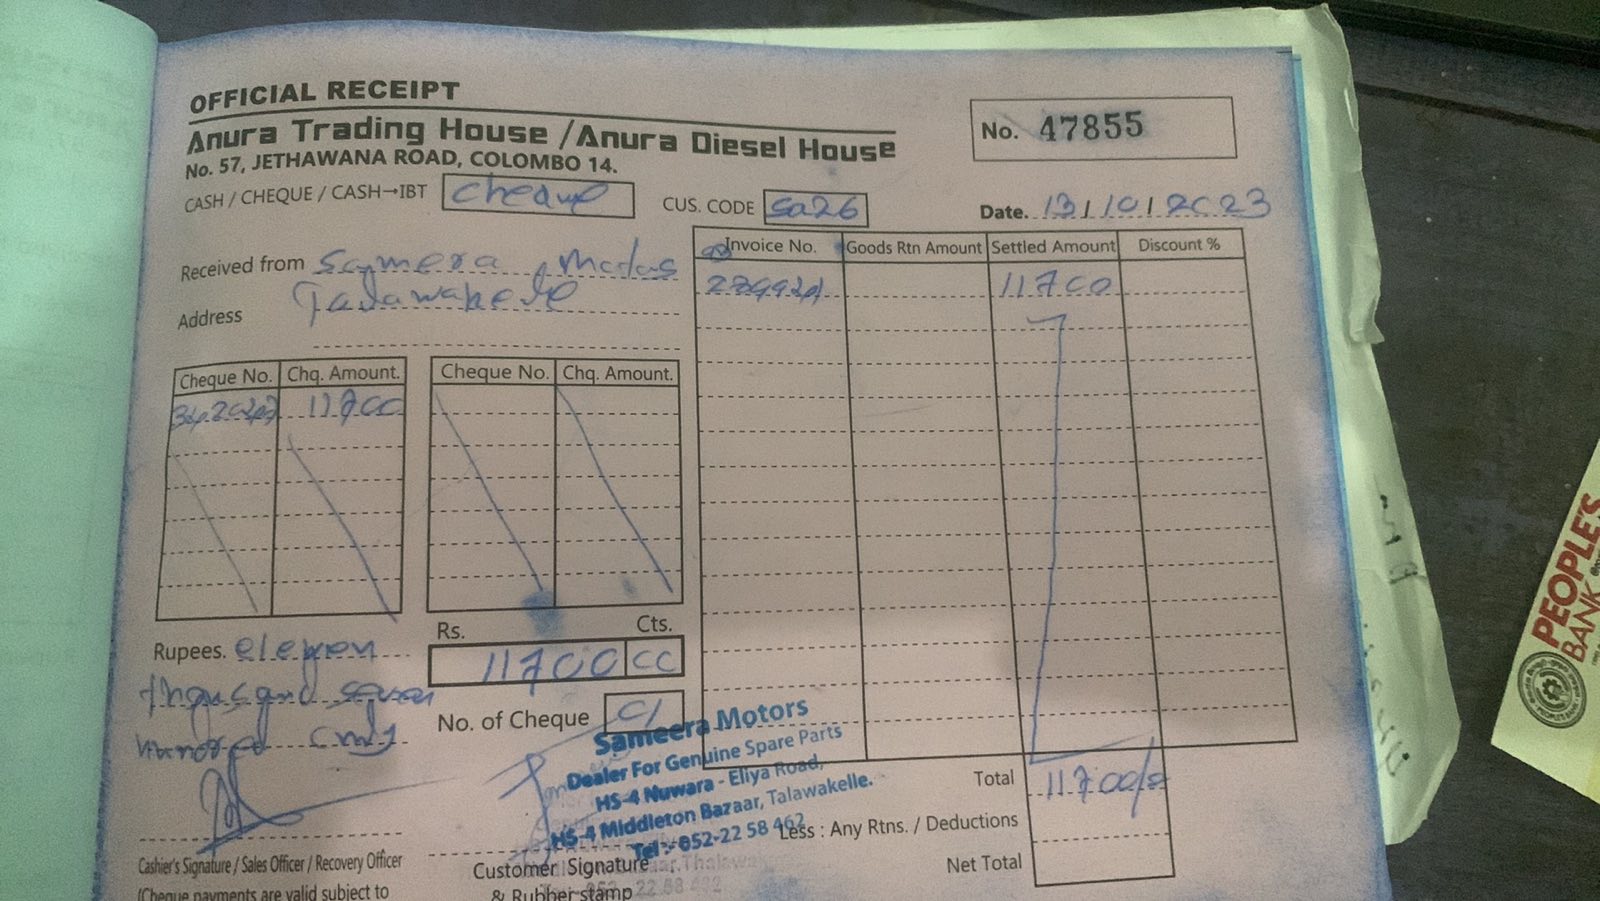 OFFICIAL RECEIPT
Anura Trading House / Anura Diesel House
No. 57, JETHAWANA ROAD, COLOMBO 14.
No. 47855
CASH / CHEQUE / CASH→IBT cheque
CUS. CODE sa26
Date. 13/10/2023
Received from Sameera Motors
Address Talawakele
Invoice No. Goods Rtn Amount Settled Amount Discount %
11700
Cheque No. Chq. Amount. Cheque No. Chq. Amount.
11700
Rs. Cts.
11700 00
Rupees. eleven
thousand seven
hundred only
No. of Cheque 01
Sameera Motors
Dealer For Genuine Spare Parts
HS-4 Nuwara - Eliya Road,
HS-4 Middleton Bazaar, Talawakelle.
Tel:- 052-22 58 462
Total 11700/=
Less : Any Rtns. / Deductions
Net Total
Cashier's Signature / Sales Officer / Recovery Officer
(Cheque payments are valid subject to
Customer Signature
& Rubber stamp
PEOPLE'S
BANK